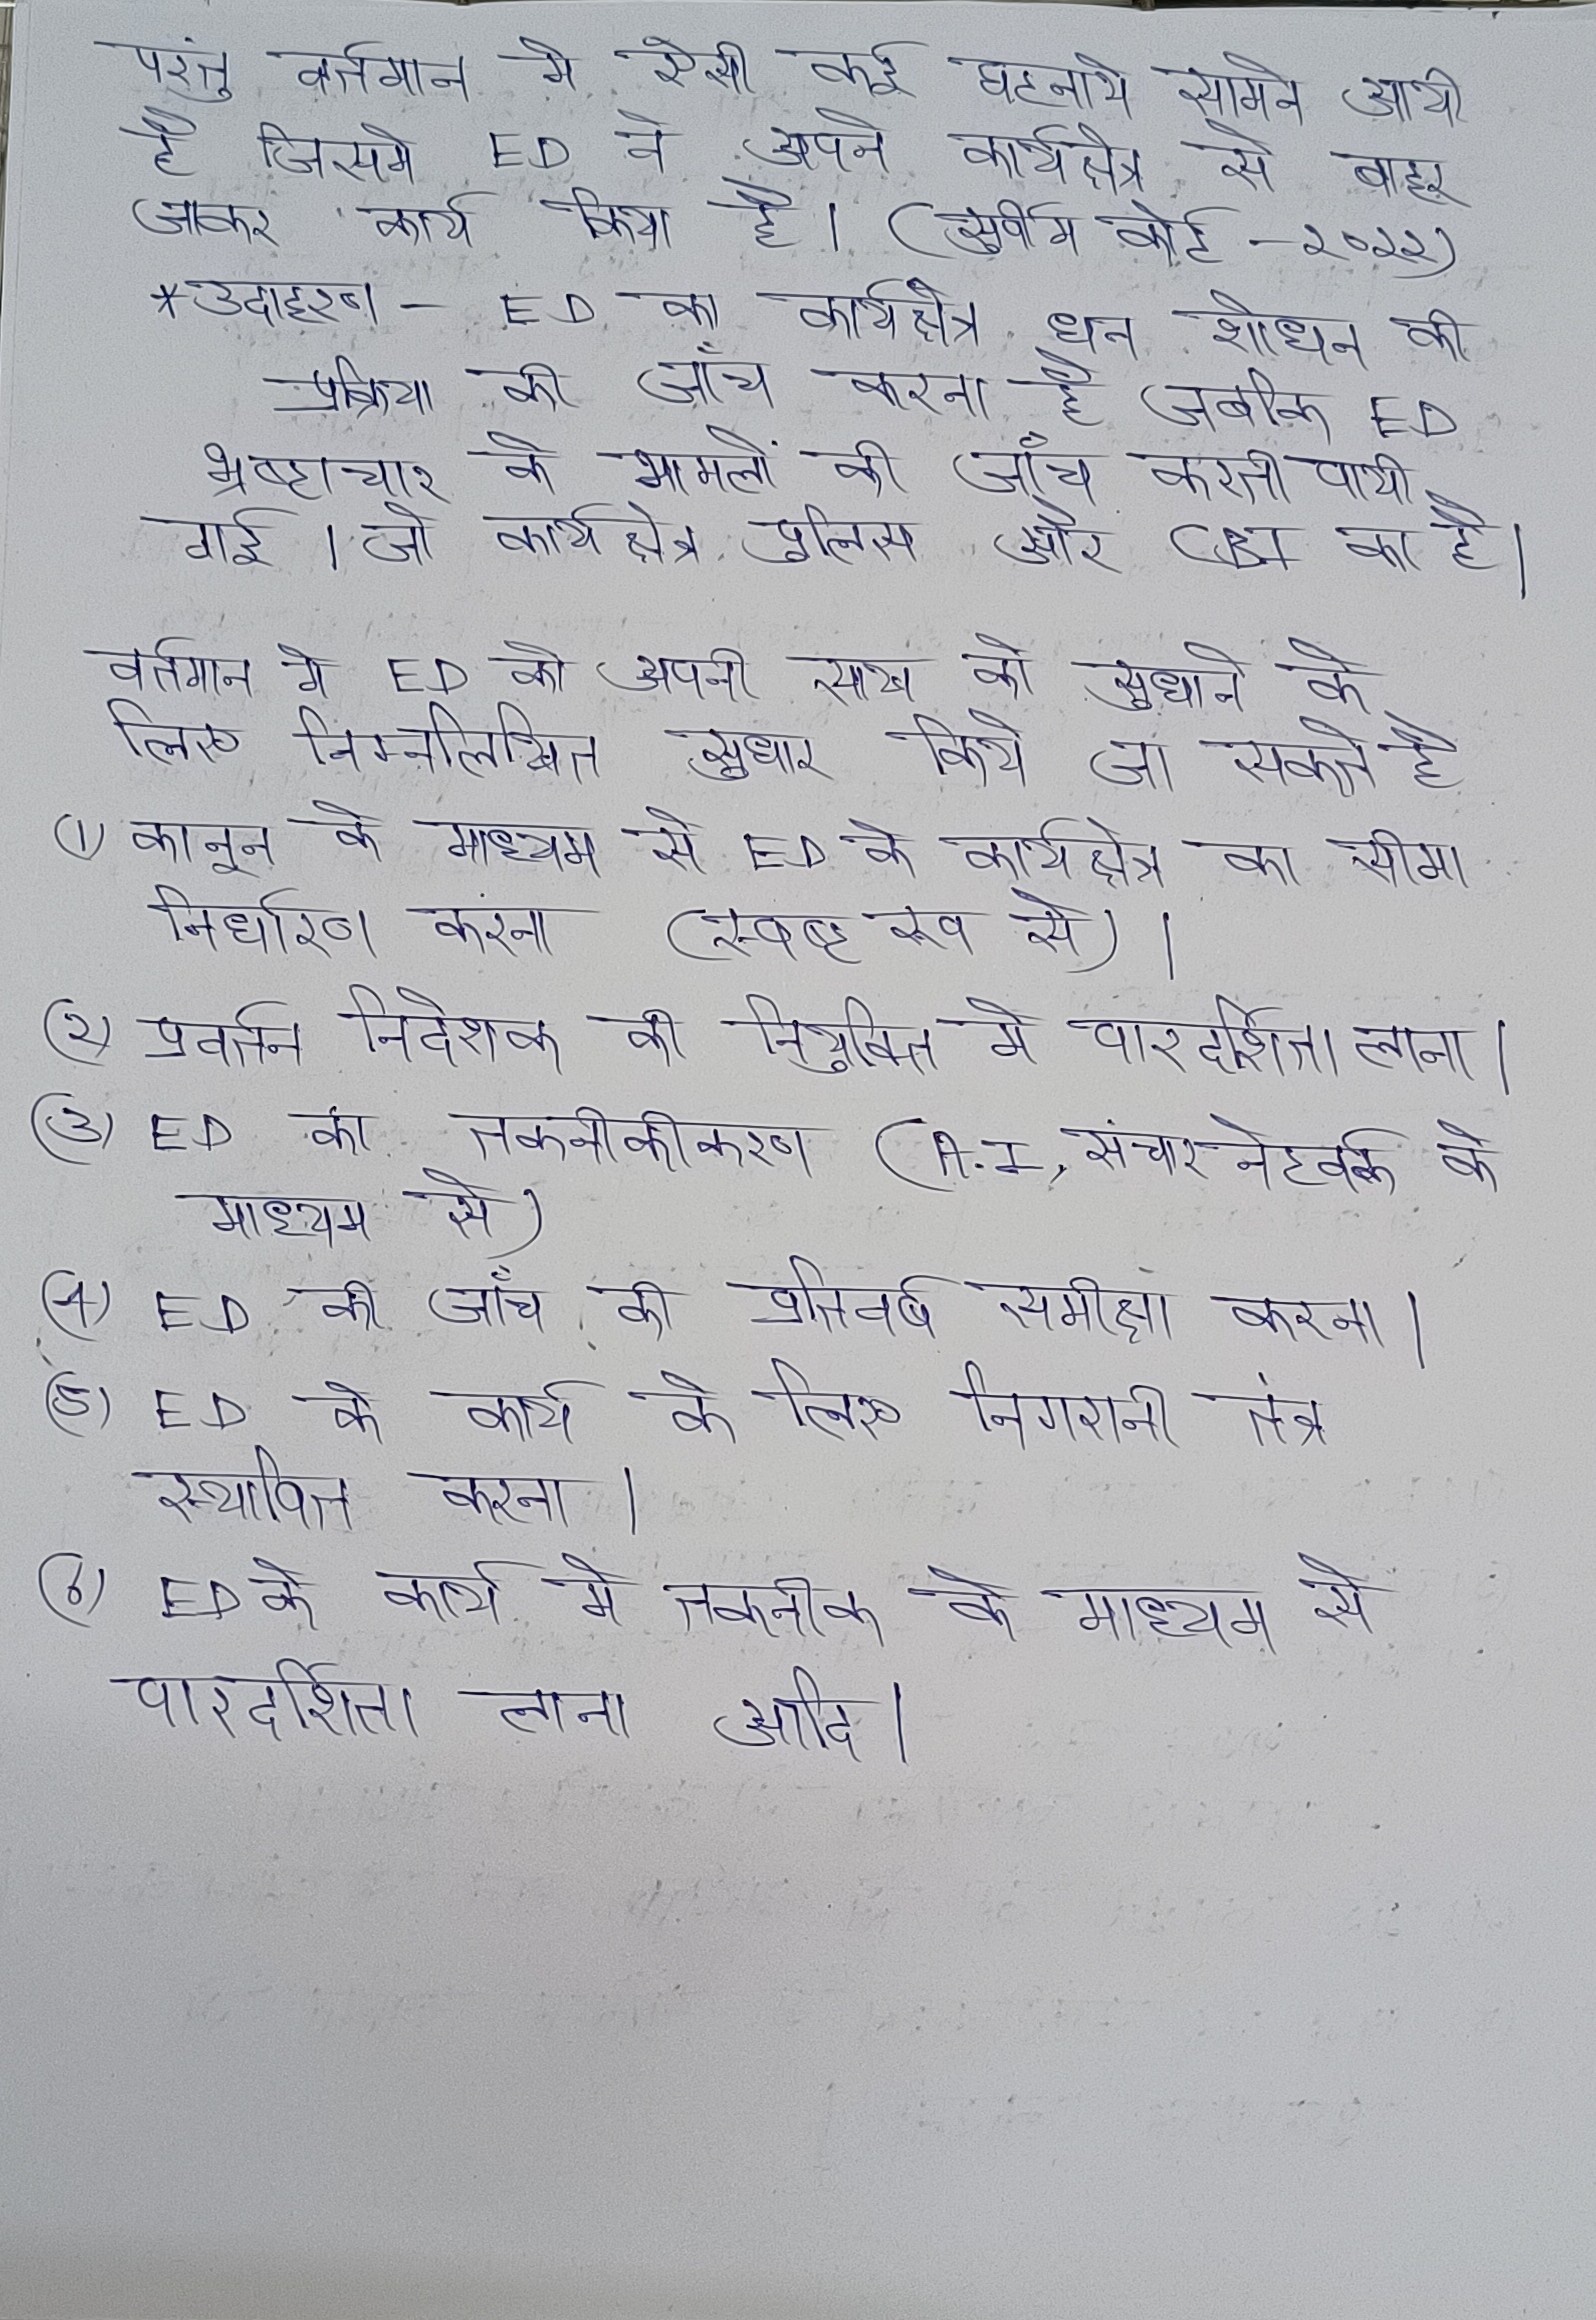 परंतु वर्तमान मे ऐसी कई घटनाये सामने आयी
है जिसमे ED ने अपने कार्यक्षेत्र से बाहर
जाकर कार्य किया है। (सुप्रीम कोर्ट - २०२२)
*उदाहरण - ED का कार्यक्षेत्र धन शोधन की
प्रक्रिया की जाँच करना है जबकि ED
भ्रष्टाचार के मामलों की जाँच करती पायी
गई। जो कार्यक्षेत्र पुलिस और CBI का है।
वर्तमान मे ED को अपनी साख को सुधाने के
लिए निम्नलिखित सुधार किये जा सकते है
(1) कानून के माध्यम से ED के कार्यक्षेत्र का सीमा
निर्धारण करना (स्पष्ट रूप से)।
(2) प्रवर्तन निदेशक की नियुक्ति मे पारदर्शिता लाना।
(3) ED का तकनीकीकरण (A.I, संचार नेटवर्क के
माध्यम से)
(4) ED की जाँच की प्रतिवर्ष समीक्षा करना।
(5) ED के कार्य के लिए निगरानी तंत्र
स्थापित करना।
(6) ED के कार्य मे तकनीक के माध्यम से
पारदर्शिता लाना आदि।